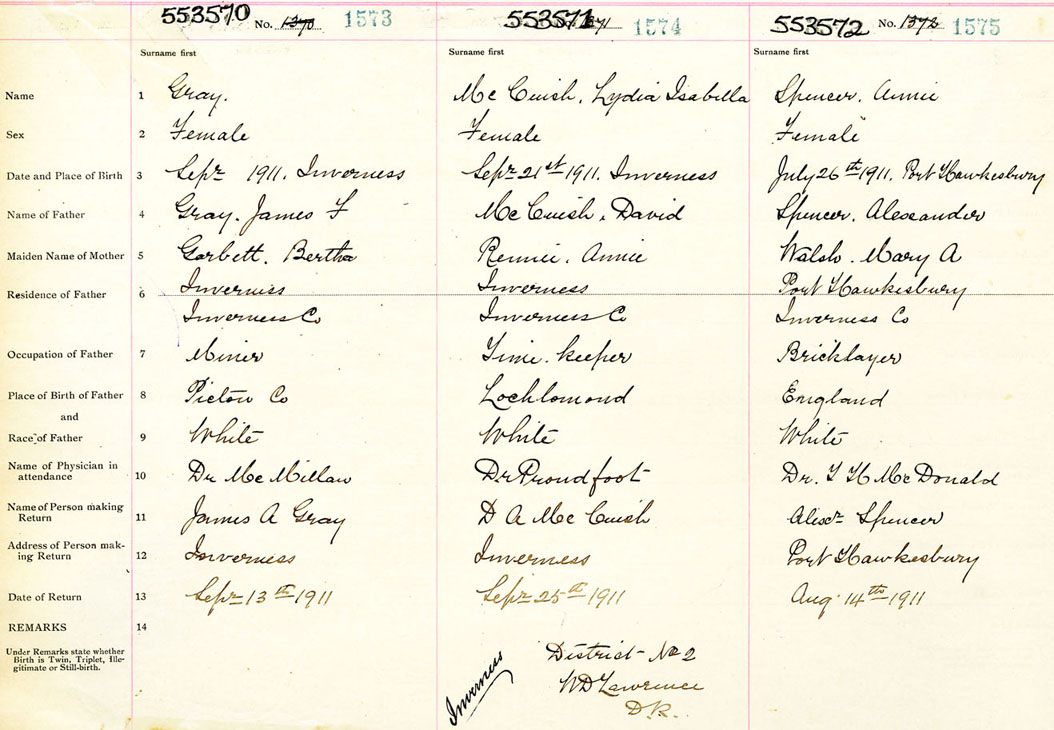 553570 No. 1370 1573 553571 1371 1574 553572 No. 1372 1575
Surname first Surname first Surname first
Name 1 Gray. Mc Cuish, Lydia Isabella Spencer. Annie
Sex 2 Female Female Female
Date and Place of Birth 3 Sepr 1911. Inverness Sepr 21st 1911. Inverness July 26th 1911. Port Hawkesbury
Name of Father 4 Gray. James F Mc Cuish, David Spencer. Alexander
Maiden Name of Mother 5 Gorbett. Bertha Rennie. Annie Walsh. Mary A
Residence of Father 6 Inverness Inverness Port Hawkesbury
Inverness Co Inverness Co Inverness Co
Occupation of Father 7 Miner Time. keeper Bricklayer
Place of Birth of Father 8 Pictou Co Lochlomond England
and
Race of Father 9 White White White
Name of Physician in
attendance 10 Dr McMillan Dr Proudfoot Dr. McDonald
Name of Person making
Return 11 James A Gray D A McCuish Alexr Spencer
Address of Person mak-
ing Return 12 Inverness Inverness Port Hawkesbury
Date of Return 13 Sepr 13th 1911 Sepr 25th 1911 Aug. 14th 1911
REMARKS 14
Under Remarks state whether
Birth is Twin, Triplet, Ille-
gitimate or Still-birth.
Inverness
District - No 2
WD Lawrence
D.R.